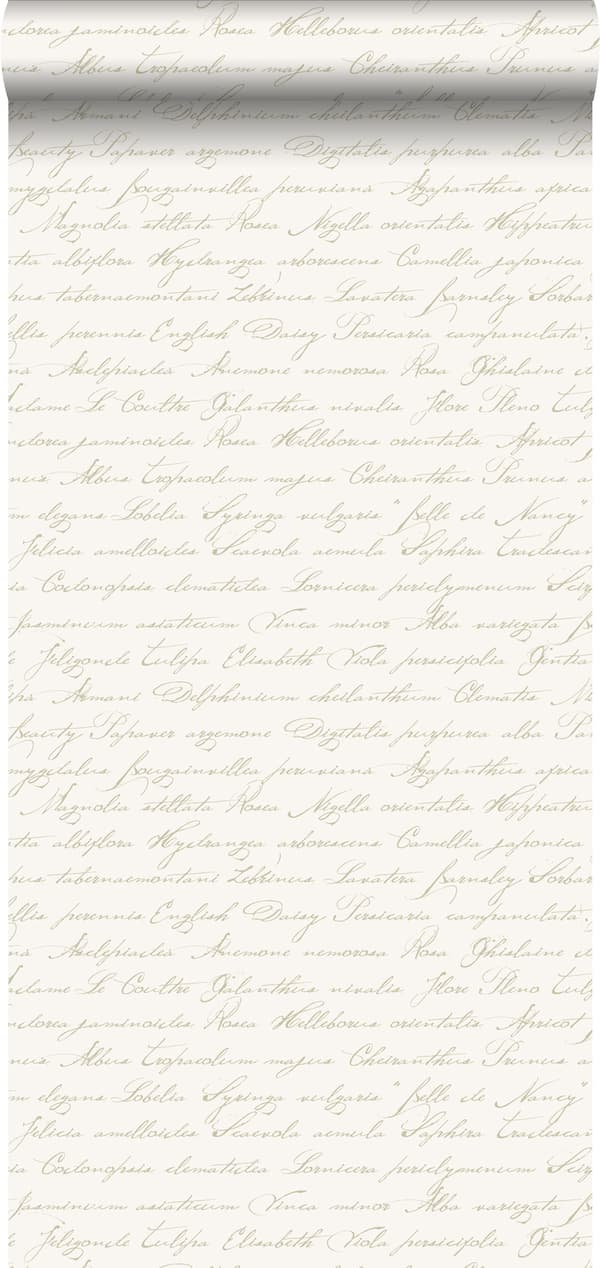 dorea jaminoides Rosea Helleborus orientalis Apricot
Albus Tropaeolum majus Cheiranthus Prunus a
Armani Delphinium cheilanthum Clematis
Beauty Papaver argemone Digitalis purpurea alba Pa
mygdalus Bougainvillea peruviana Agapanthus africa
Magnolia stellata Rosea Nigella orientalis Hippeatru
tia albiflora Hydrangea arborescens Camellia japonica
hus tabernaemontani Zebrinus Lavatera Barnsley Sorbar
ellis perennis English Daisy Persicaria campanulata
na Asclepiadea Anemone nemorosa Rosa Ghislaine d
adame Le Coultre Galanthus nivalis Flore Pleno Tulip
dorea jaminoides Rosea Helleborus orientalis Apricot
nus Albus Tropaeolum majus Cheiranthus Prunus a
m elegans Lobelia Syringa vulgaris "Belle de Nancy"
Felicia amelloides Scaevola aemula Saphira Tradescan
ia Codonopsis clematidea Lornicera periclymenum Scir
Jasminum asiaticum Vinca minor Alba variegata B
e Feligonde Tulipa Elisabeth Viola persicifolia Gentia
lipa Armani Delphinium cheilanthum Clematis M
Beauty Papaver argemone Digitalis purpurea alba Pa
mygdalus Bougainvillea peruviana Agapanthus africa
Magnolia stellata Rosea Nigella orientalis Hippeatru
tia albiflora Hydrangea arborescens Camellia japonica
hus tabernaemontani Zebrinus Lavatera Barnsley Sorbar
ellis perennis English Daisy Persicaria campanulata
na Asclepiadea Anemone nemorosa Rosa Ghislaine d
adame Le Coultre Galanthus nivalis Flore Pleno Tulip
dorea jaminoides Rosea Helleborus orientalis Apricot
nus Albus Tropaeolum majus Cheiranthus Prunus a
m elegans Lobelia Syringa vulgaris "Belle de Nancy"
Felicia amelloides Scaevola aemula Saphira Tradescan
ia Codonopsis clematidea Lornicera periclymenum Scir
Jasminum asiaticum Vinca minor Alba variegata B
e Feligonde Tulipa Elisabeth Viola persicifolia Gentia